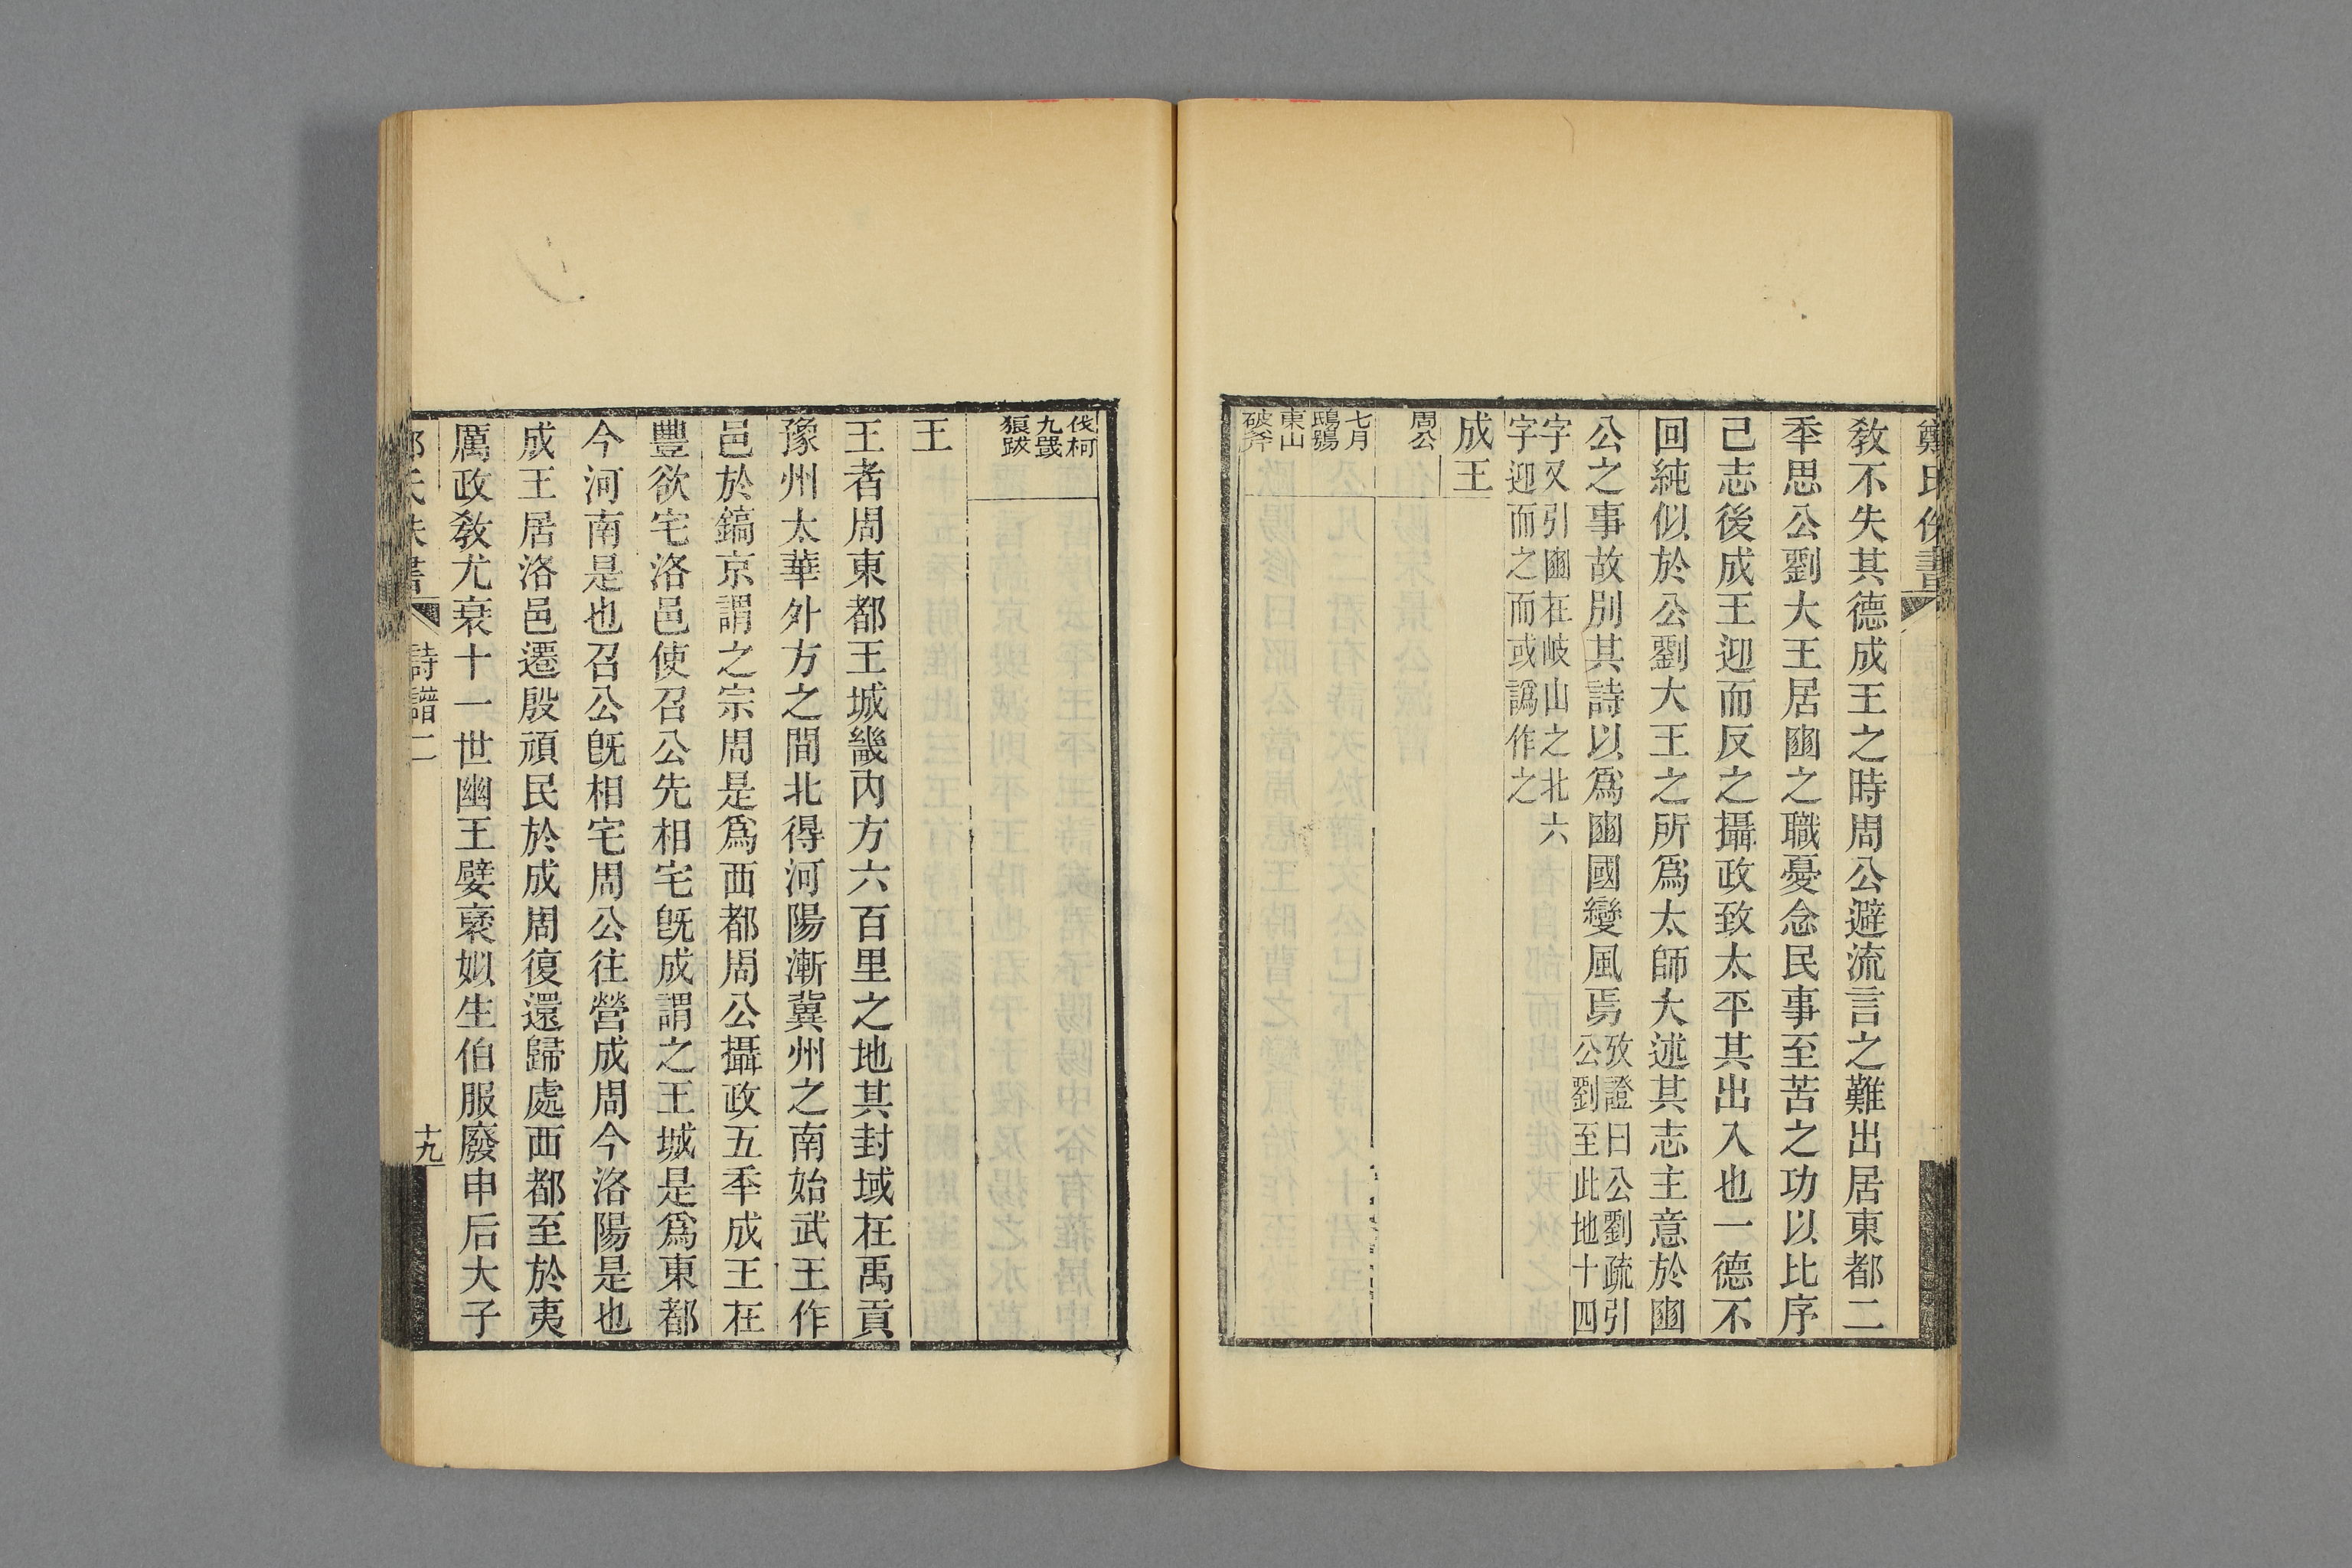 鄭氏佚書
敎不失其德成王之時周公避流言之難出居東都二
秊思公劉大王居豳之職憂念民事至苦之功以比序
己志後成王迎而反之攝政致太平其出入也一德不
回純似於公劉大王之所爲太師大述其志主意於豳
公之事故別其詩以爲豳國變風焉
攷證曰公劉疏引
公劉至此地十四
字又引豳在岐山之北六
字迎而之而或譌作之
成王
周公
七月
鴟鴞
東山
破斧
伐柯
九罭
狼跋
王
王者周東都王城畿內方六百里之地其封域在禹貢
豫州太華外方之間北得河陽漸冀州之南始武王作
邑於鎬京謂之宗周是爲西都周公攝政五秊成王在
豐欲宅洛邑使召公先相宅旣成謂之王城是爲東都
今河南是也召公旣相宅周公往營成周今洛陽是也
成王居洛邑遷殷頑民於成周復還歸處西都至於夷
厲政敎尤衰十一世幽王嬖褒姒生伯服廢申后大子
詩譜二
十九